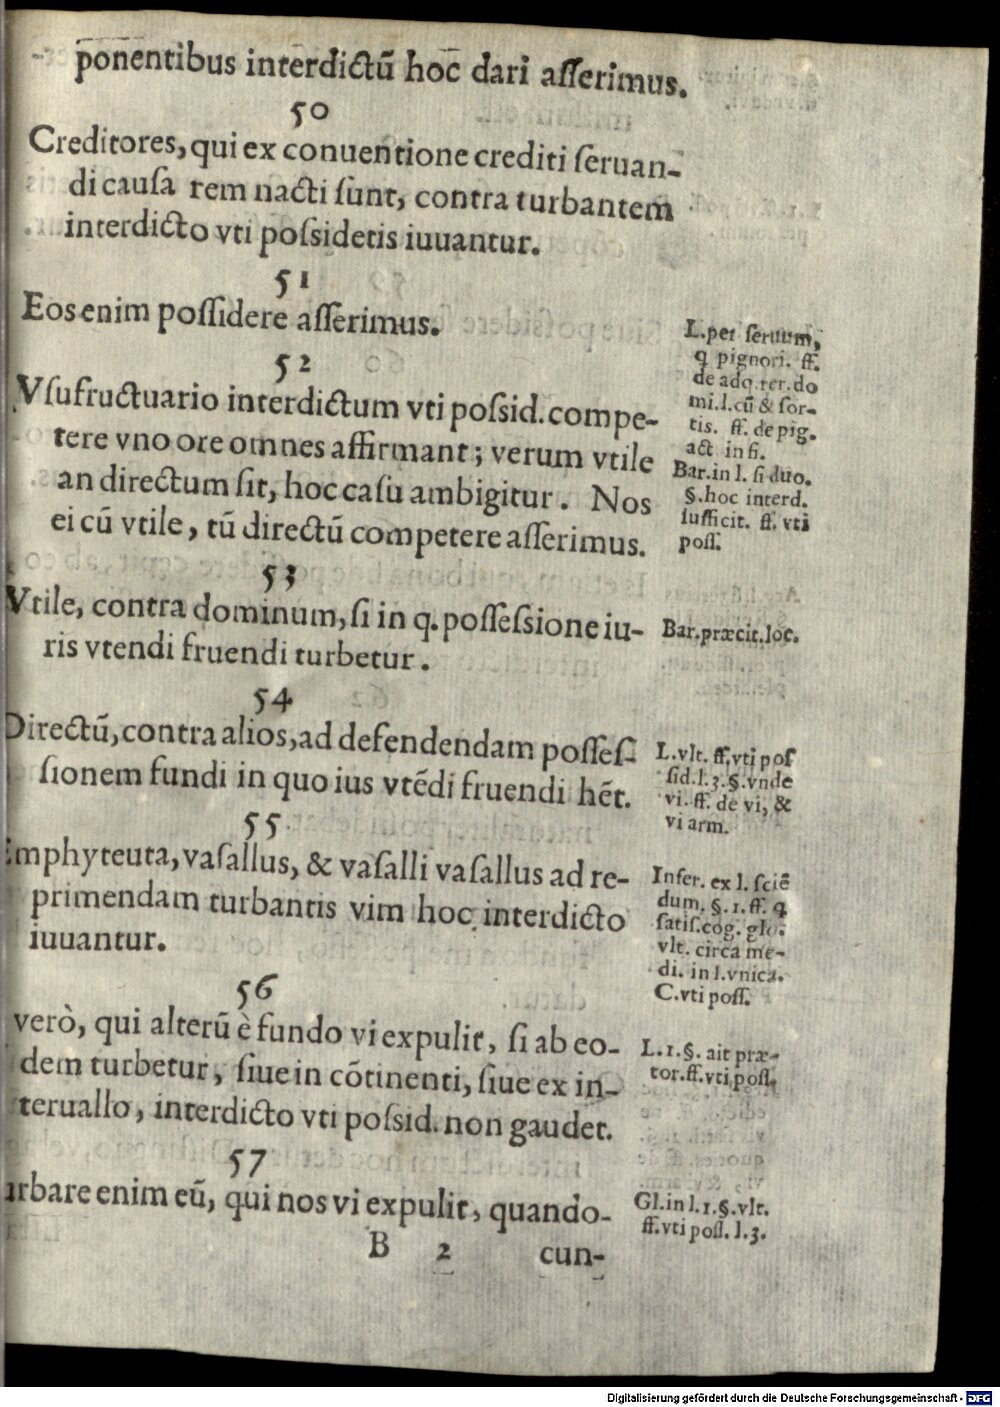 ponentibus interdictū hoc dari aſſerimus.
50
Creditores, qui ex conuentione crediti ſeruan-
di cauſa rem nacti ſunt, contra turbantem
interdicto vti poſsidetis iuuantur.
51
Eos enim poſſidere aſſerimus.
L. per ſeruum,
q pignori. ff.
de adq. rer. do
mi. l. cū & ſor-
tis. ff. de pig.
act in fi.
52
Vſufructuario interdictum vti poſsid. compe-
tere vno ore omnes affirmant; verum vtile
an directum ſit, hoc caſu ambigitur. Nos
ei cū vtile, tū directū competere aſſerimus.
Bar. in l. ſi duo.
§. hoc interd.
ſufficit. ff. vti
poſſ.
53
Vtile, contra dominum, ſi in q. poſſeſsione iu-
ris vtendi fruendi turbetur.
Bar. præcit. loc.
54
Directū, contra alios, ad defendendam poſſeſ-
ſionem fundi in quo ius vtēdi fruendi hēt.
L. vlt. ff. vti poſ
ſid. l. 3. §. vnde
vi. ff. de vi, &
vi arm.
55
Emphyteuta, vaſallus, & vaſalli vaſallus ad re-
primendam turbantis vim hoc interdicto
iuuantur.
Infer. ex l. ſciē
dum. §. 1. ff. q
ſatiſ. cog. glo.
vlt. circa me-
di. in l. vnica.
C. vti poſſ.
56
verò, qui alterū è fundo vi expulit, ſi ab eo-
dem turbetur, ſiue in cōtinenti, ſiue ex in-
teruallo, interdicto vti poſsid. non gaudet.
L. 1. §. ait præ-
tor. ff. vti poſſ.
57
urbare enim eū, qui nos vi expulit, quando-
Gl. in l. 1. §. vlt.
ff. vti poſſ. l. 3.
B 2 cun-
Digitalisierung gefördert durch die Deutsche Forschungsgemeinschaft - DFG